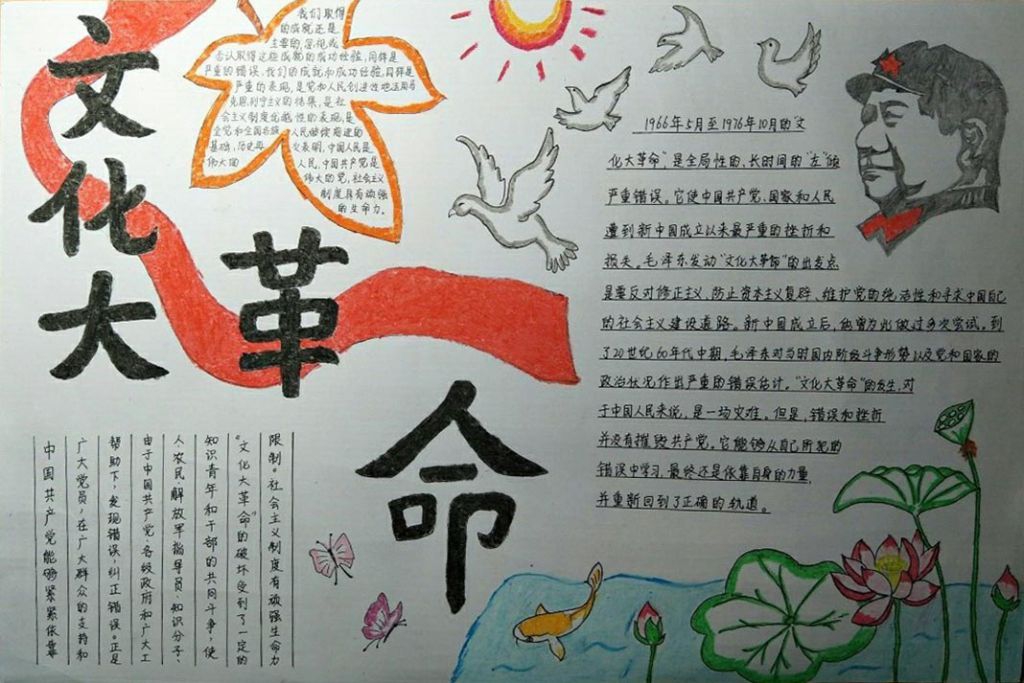 文化大
革
命
我们取得
的成就还是
主要的,忽视或
否认取得这些成就的成功经验,同样是
严重的错误。我们的成就和成功经验,同样是
严重的表现,是党和人民创造性地运用马
克思列宁主义的结果,是社
会主义制度优越性的表现,是
全党和全国各族人民继续前进的
基础。历史再次表明,中国人民是
伟大的人民,中国共产党是
伟大的党,社会主义
制度具有顽强
的生命力。
1966年5月至1976年10月的“文
化大革命”,是全局性的,长时间的“左”倾
严重错误。它使中国共产党、国家和人民
遭到新中国成立以来最严重的挫折和
损失。毛泽东发动“文化大革命”的出发点
是要反对修正主义、防止资本主义复辟、维护党的纯洁性和寻求中国自己
的社会主义建设道路。新中国成立后,他曾为此做过多次尝试,到
了20世纪60年代中期,毛泽东对当时国内阶级斗争形势以及党和国家的
政治状况作出严重的错误估计。“文化大革命”的发生,对
于中国人民来说,是一场灾难。但是,错误和挫折
并没有摧毁共产党。它能够从自己所犯的
错误中学习,最终还是依靠自身的力量,
并重新回到了正确的轨道。
中国共产党能够紧紧依靠
广大党员,在广大群众的支持和
帮助下,发现错误,纠正错误。正是
由于中国共产党、各级政府和广大工
人、农民、解放军指导员、知识分子、
知识青年和干部的共同斗争,使
“文化大革命”的破坏受到了一定的
限制。社会主义制度有顽强生命力